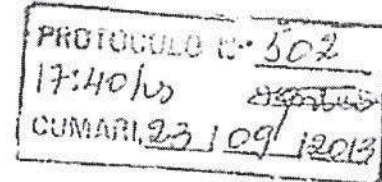 PROTOCOLO Nº 502
17:40 hs
CUMARI, 23 / 09 / 2013